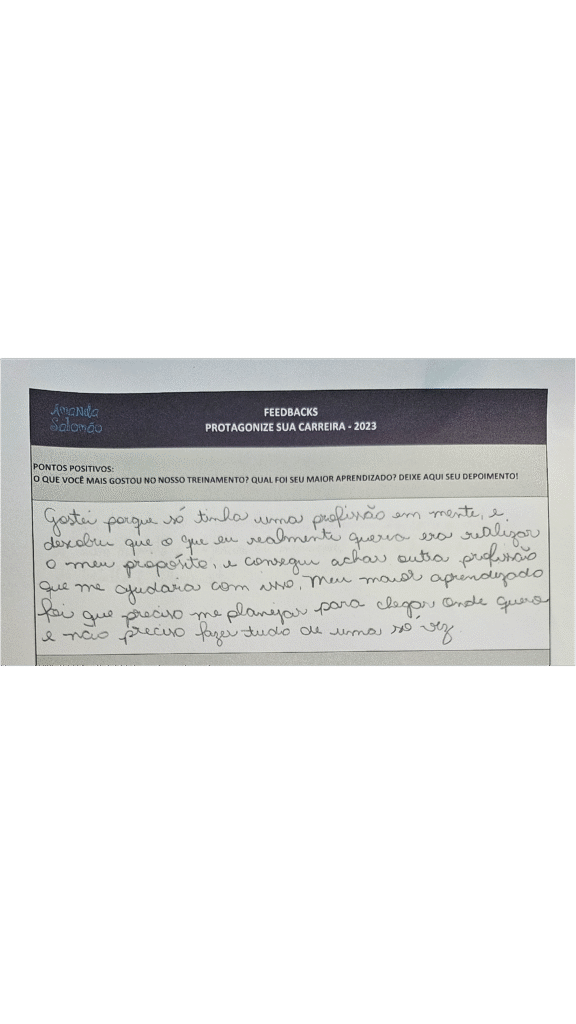 Amanda
Salomão
FEEDBACKS
PROTAGONIZE SUA CARREIRA - 2023
PONTOS POSITIVOS:
O QUE VOCÊ MAIS GOSTOU NO NOSSO TREINAMENTO? QUAL FOI SEU MAIOR APRENDIZADO? DEIXE AQUI SEU DEPOIMENTO!
Gostei porque só tinha uma profissão em mente, e
descobri que o que eu realmente queria era realizar
o meu propósito, e consegui achar outra profissão
que me ajudaria com isso. Meu maior aprendizado
foi que preciso me planejar para chegar onde quero
e não preciso fazer tudo de uma só vez.